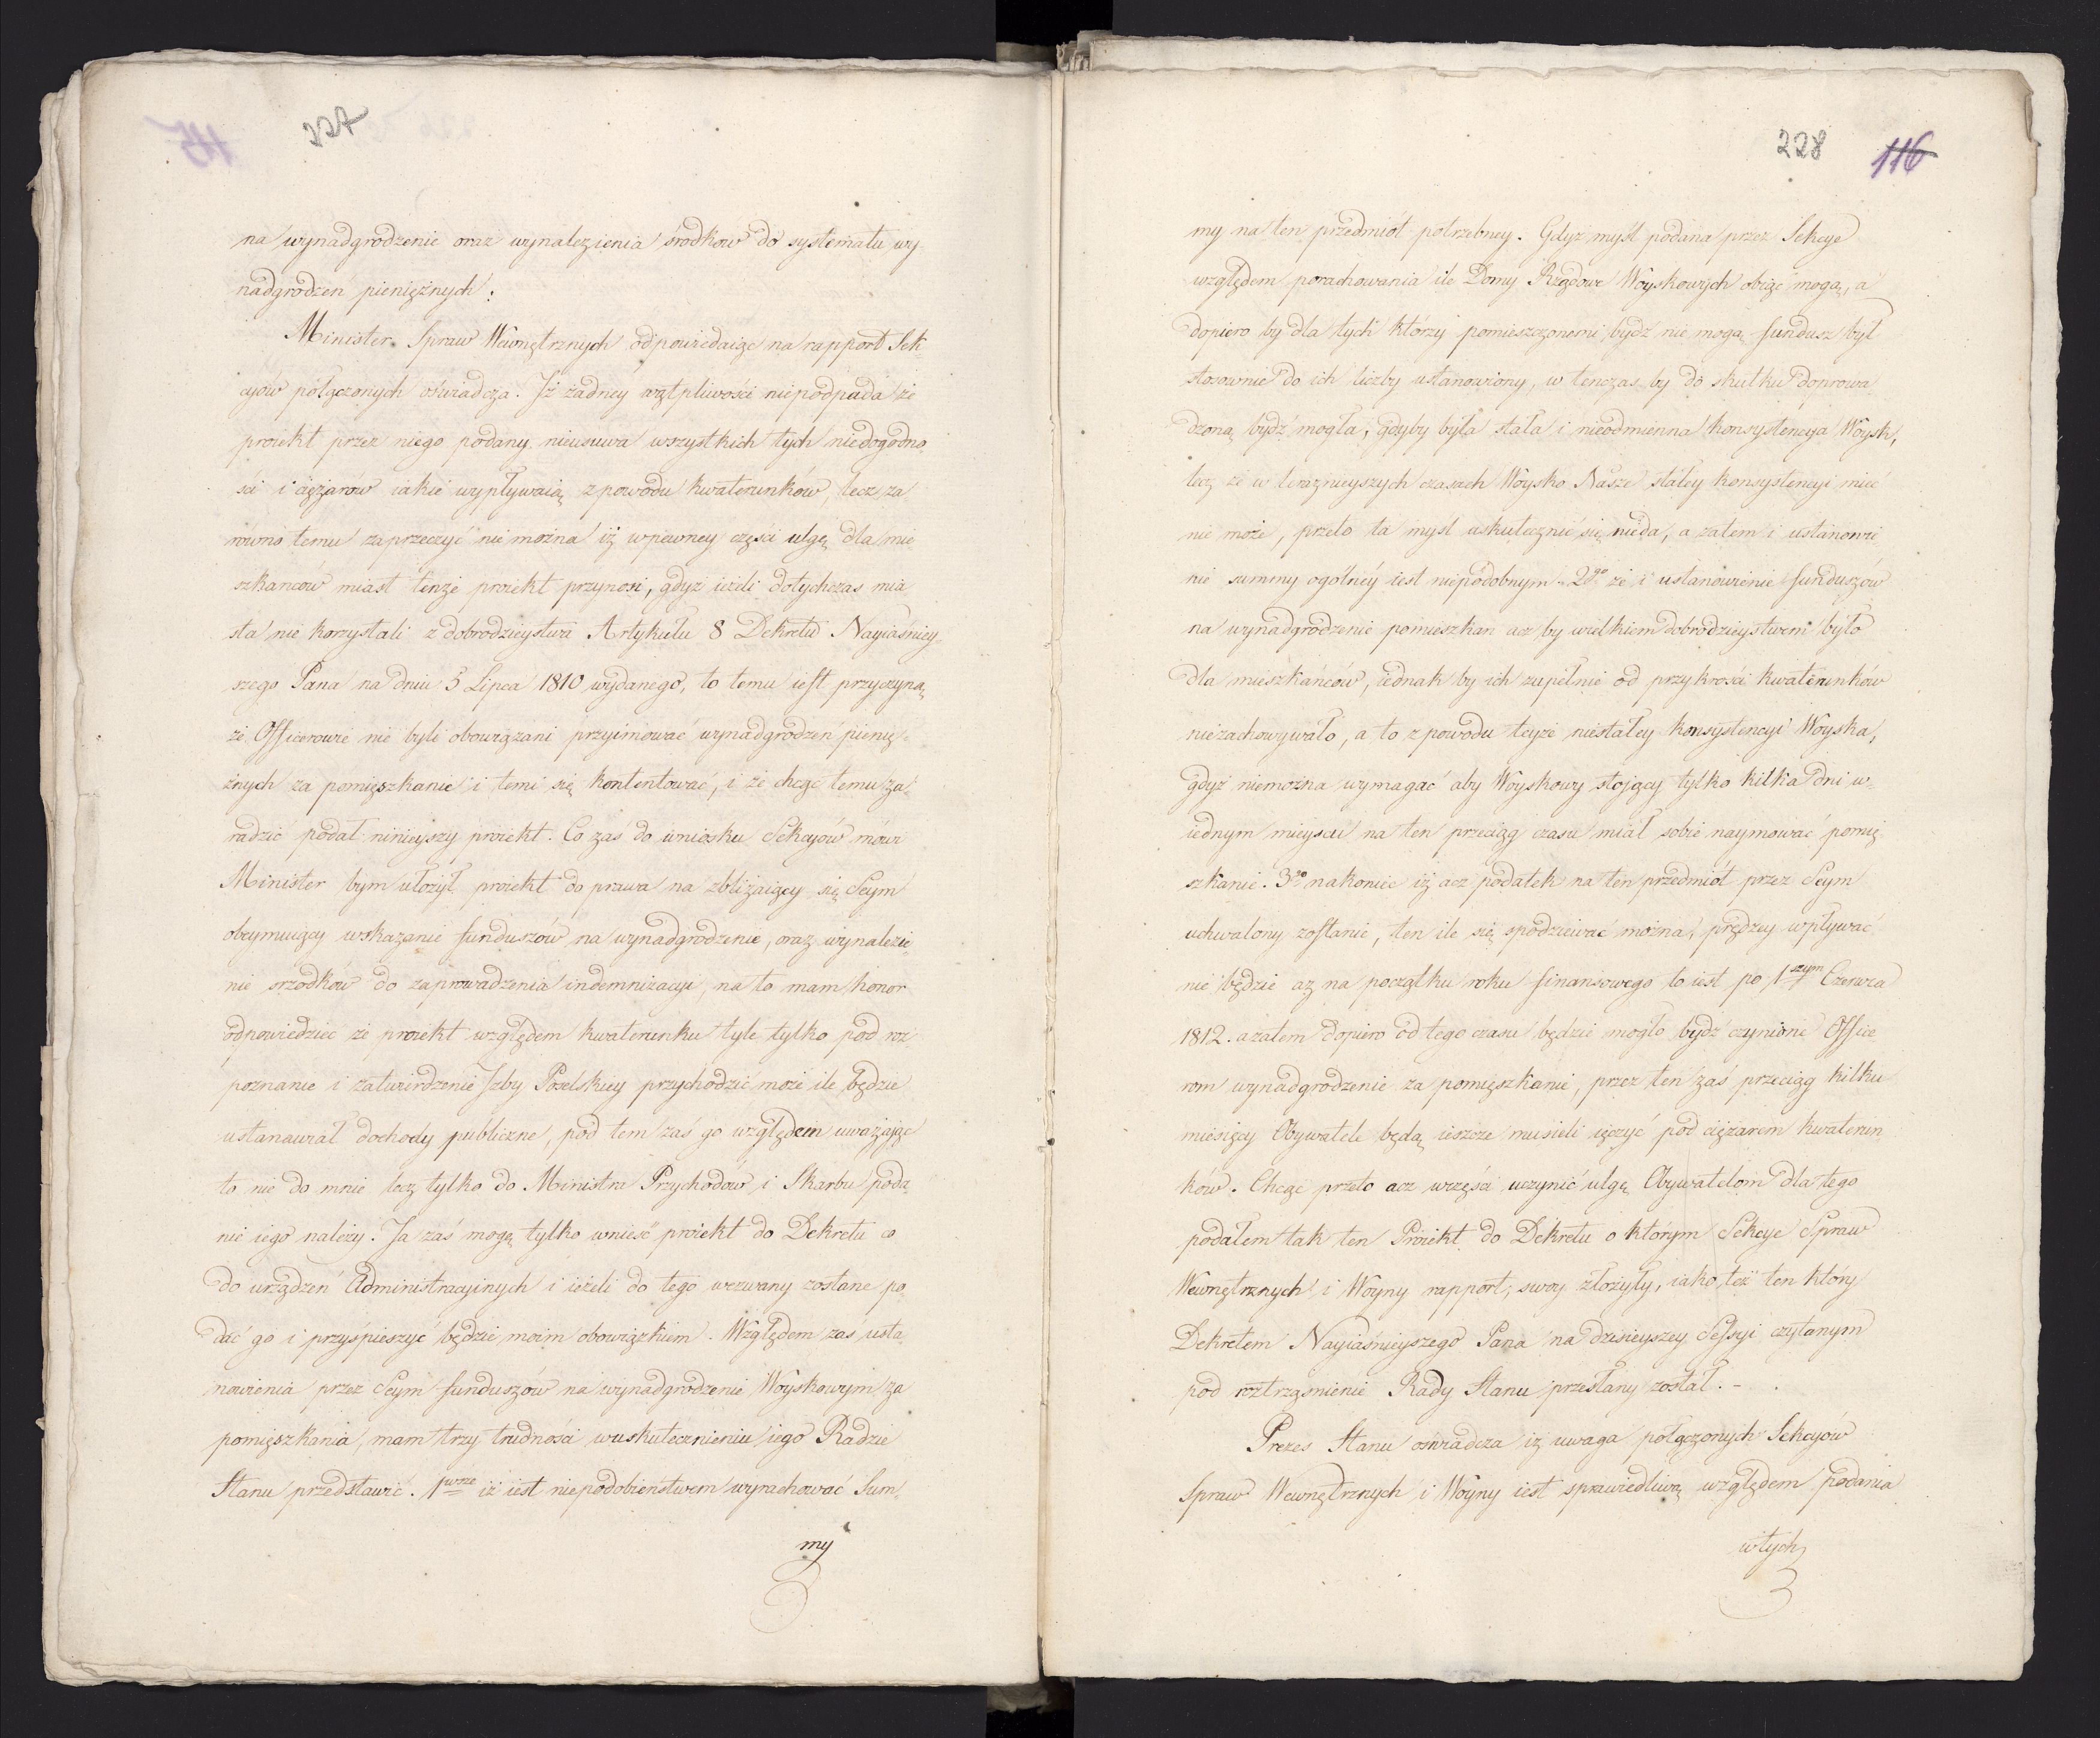 227
na wynadgrodzenie oraz wynalezienia srodkow do systematu wy
nadgrodzeń pieniężnych.
Minister Spraw Wewnętrznych odpowiedaiąc na rapport Sek
cyów połączonych oświadcza. Iż żadney wątpliwości niepodpada że
proiekt przez niego podany nieusuwa wszystkich tych niedogodno
ści i ciężarów iakie wypływaią z powodu kwaterunków, lecz za
równo temu zaprzeczyć nie można iż w pewney części ulgę dla mie
szkanców miast tenże proiekt przynosi, gdyż ieżeli dotychczas mia
sta nie korzystali z dobrodzieystwa Artykułu 8 Dekretu Nayiaśniey
szego Pana na dniu 5 Lipca 1810 wydanego, to temu iest przyczyną
że Officerowie nie byli obowiązani przyimować wynadgrodzeń pienię
żnych za pomięszkanie i temi się kontentować, i że chcąc temu za
radzić podał ninieyszy proiekt. Co zaś do wniosku Sekcyów mówi
Minister bym ułożył proiekt do prawa na zbliżaiący się Seym
obeymuiący wskazanie funduszów na wynadgrodzenie, oraz wynalezie
nie srzodków do zaprowadzenia indemnizacyi, na to mam honor
odpowiedzieć że proiekt względem kwaterunku tyle tylko pod roz
poznanie i zatwierdzenie Izby Poselskiey przychodzić może ile będzie
ustanawiał dochody publiczne, pod tem zaś go względem uważając
to nie do mnie lecz tylko do Ministra Przychodów i Skarbu poda
nie iego należy. Ja zaś mogę tylko wnieść proiekt do Dekretu co
do urządzeń Administracyinych i ieżeli do tego wezwany zostane po
dać go i przyśpieszyć będzie moim obowiązkiem. Względem zaś usta
nowienia przez Seym funduszów na wynadgrodzenie Woyskowym za
pomięszkania, mam trzy trudności w uskutecznieniu iego Radzie
Stanu przedstawić. 1wsze iż iest niepodobieństwem wyrachować Sum
my
228 116
my na ten przedmiót potrzebney. Gdyż myśl podana przez Sekcye
względem porachowania ile Domy Rządowe Woyskowych obiąć mogą, a
dopiero by dla tych którzy pomieszczonemi bydź nie mogą fundusz był
stosownie do ich liczby ustanowiony, w tenczas by do skutku doprowa
dzoną bydź mogła, gdyby była stała i nieodmienna konsystencya Woysk,
lecz że w teraznieyszych czasach Woysko Nasze stałey konsystencyi mieć
nie może, przeto ta mysl uskutecznić się nieda, a zatem i ustanowie
nie summy ogólnéy iest niepodobnym. 2go że i ustanowienie funduszów
na wynadgrodzenie pomieszkan acz by wielkiem dobrodzieystwem było
dla mieszkańców, iednak by ich zupełnie od przykrości kwaterunków
niezachowywało, a to z powodu teyże niestałey konsystencyi Woyska,
gdyż niemożna wymagać aby Woyskowy stojący tylko kilka dni w
iednym mieyscu na ten przeciąg czasu miał sobie naymować pomię
szkanie. 3go nakoniec iż acz podatek na ten przedmiót przez Seym
uchwalony zostanie, ten ile się spodziewać można, prędzey wpływać
nie będzie aż na początku roku finansowego to iest po 1szym Czerwca
1812. a zatem dopiero od tego czasu będzie mogło bydź czynione Office
rom wynadgrodzenie za pomięszkanie, przez ten zaś przeciąg kilku
miesięcy Obywatele będą ieszcze musieli ięczyć pod ciężarem kwaterun
ków. Chcąc przeto acz w części uczynić ulgę Obywatelom dla tego
podałem tak ten Proiekt do Dekretu o którym Sekcye Spraw
Wewnętrznych i Woyny rapport swoy złożyły, iako też ten który
Dekretem Nayiaśnieyszego Pana na dzisieyszey Sessyi czytanym
pod roztrząsnienie Rady Stanu przesłany został. -
Prezes Stanu oświadcza iż uwaga połączonych Sekcyów
Spraw Wewnętrznych i Woyny iest sprawiedliwą względem podania
w tych